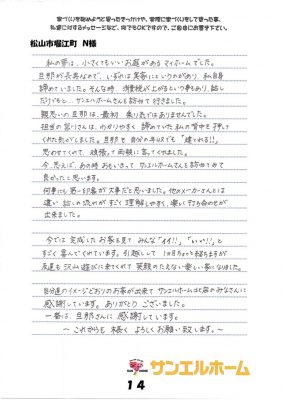 家づくりを始めようと思ったきっかけや、実際に家づくりをして思った事、
私達に対するメッセージなど、何でもOKですので、ご自由にお書き下さい。
松山市堀江町 N様
私の夢は、小さくてもいいお庭があるマイホームでした。
旦那が長男なので、いずれは実家にというのがあり、私自身
諦めていました。そんな時 消費税が上がるという事もあり、話し
だけでもと… サンエルホームさんを訪ねて行きました。
親思いの旦那は、最初 乗り気ではありませんでした。
担当の さんは、わかりやすく 諦めていた 私の背中を押して
くれた気がしました。旦那も 自分の年収でも 「建てれる!!」
思わせてくれて、頑張って両親に言ってくれました。
今、思えば、あの時 おもいきって サンエルホームさんを訪ねてみて
良かったと思います。
何事にも第一印象が大事だと思いました。他のメーカーさんとは
違い 話しの流れがすごく理解しやすく、楽しく打ち合わせが
出来ました。
今では完成したお家を見て みんな「イイ!!」「いい!!」と
すごく喜んでくれています。引越しして 1ヶ月ちょっと経ちますが
友達も 沢山遊びに来てくれて 笑顔のたえない楽しい家になりました。
自分達のイメージどおりのお家が出来て サンエルホームさんのみなさんに
感謝しています。ありがとうございました。
一番は、旦那さんに感謝しています。
～これからも 末長く よろしくお願い致します。～
サンエルホーム
14